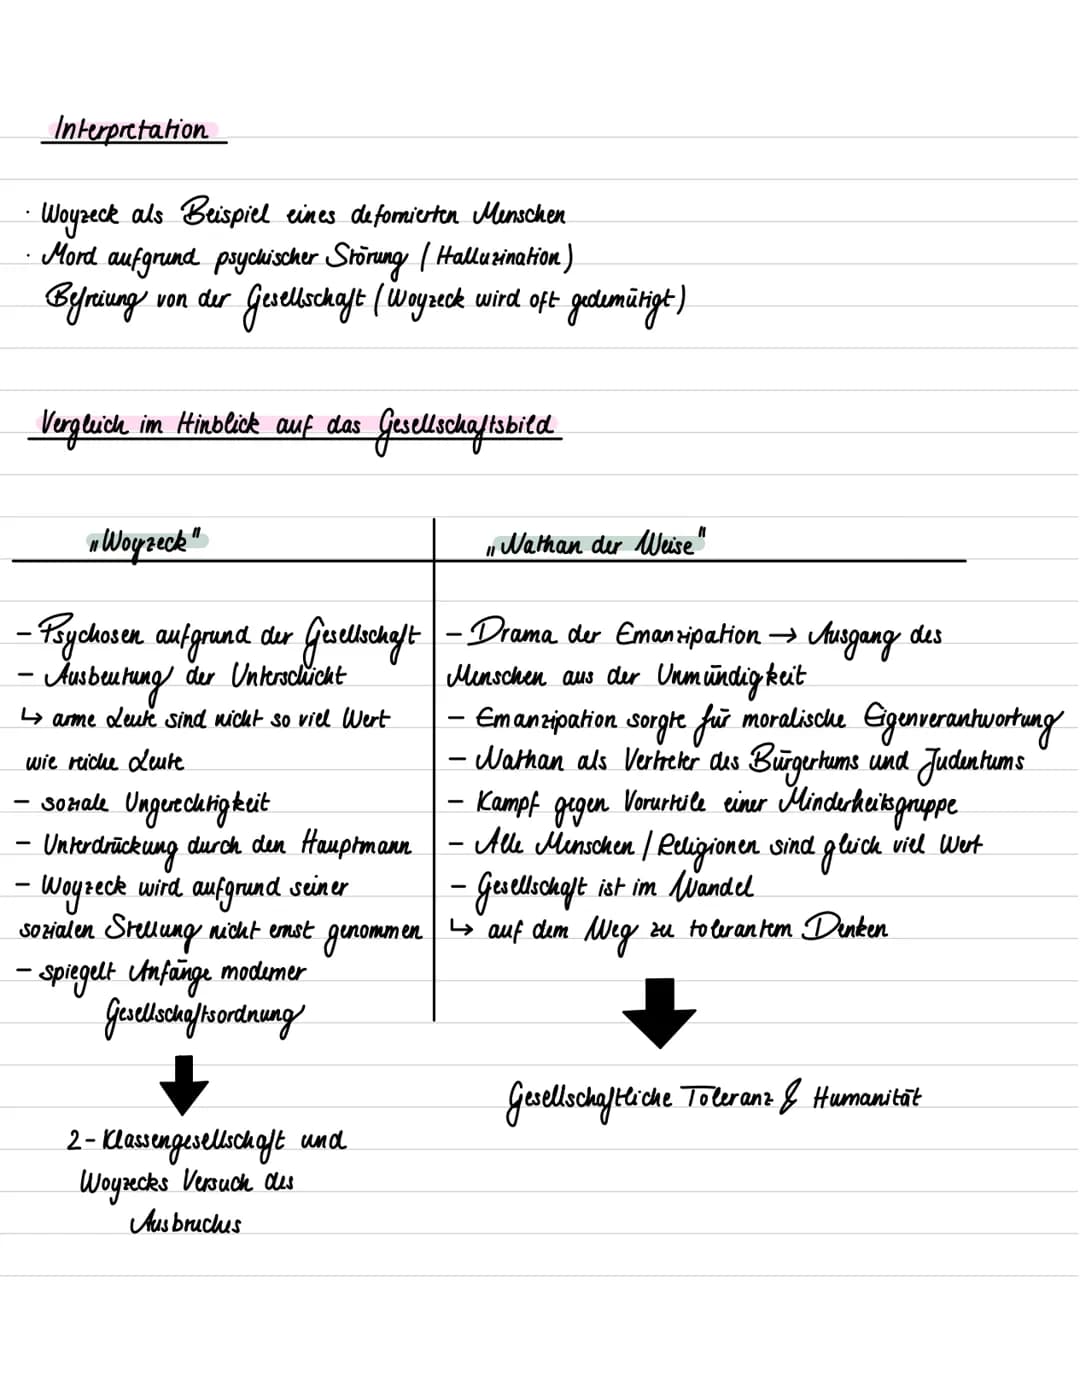 Interpretation
· Woyzeck als Beispiel eines defomierten Menschen
· Mord aufgrund psychischer Störung (Halluzination)
Befreiung von der Gesellschaft (Woyzeck wird oft gedemütigt)
Vergleich im Hinblick auf das Gesellschaftsbild
„Woyzeck"
- Psychosen aufgrund der Gesellschaft
- Ausbeutung der Unterschicht
↳ arme Leute sind nicht so viel Wert
wie reiche Leute
- soziale Ungerechtigkeit
- Unterdrückung durch den Hauptmann
- Woyzeck wird aufgrund seiner
sozialen Stellung nicht ernst genommen
- spiegelt Anfänge moderner
Gesellschaftsordnung
2-Klassengesellschaft und
Woyzecks Versuch des
Ausbruches
„Nathan der Weise"
- Drama der Emanzipation → Ausgang des
Menschen aus der Unmündigkeit
- Emanzipation sorgte für moralische Eigenverantwortung
- Nathan als Vertreter des Bürgertums und Judentums
- Kampf gegen Vorurteile einer Minderheitsgruppe
- Alle Menschen / Religionen sind gleich viel Wert
- Gesellschaft ist im Wandel
↳ auf dem Weg zu tolerantem Denken
Gesellschaftliche Toleranz & Humanität